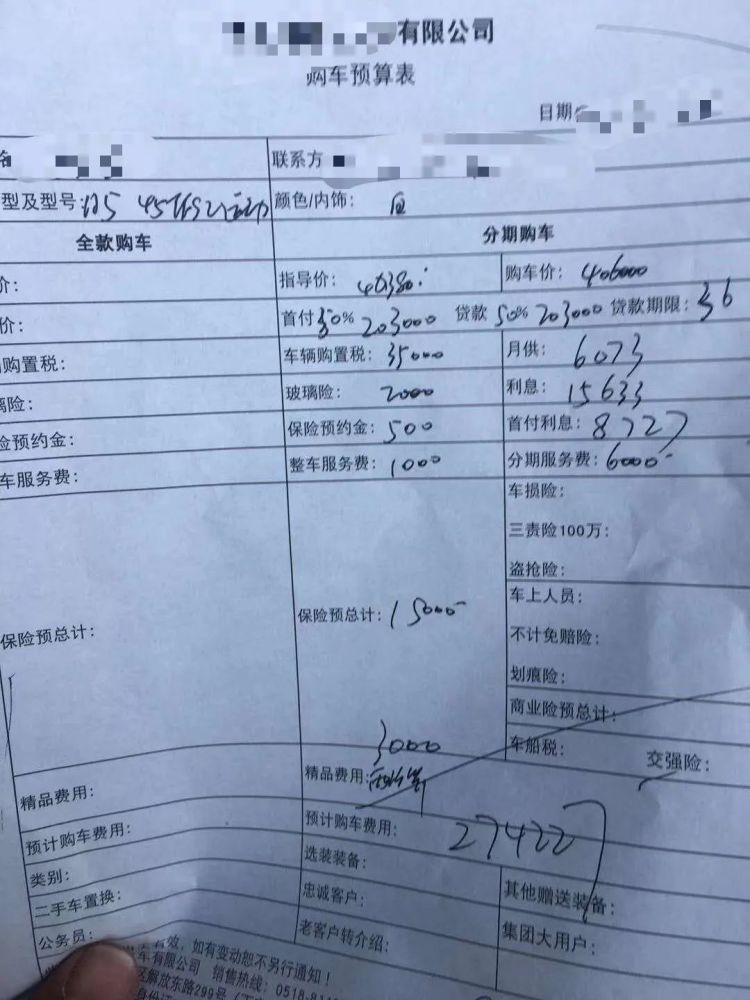 有限公司
购车预算表
日期
联系方
型及型号: Q5 45TFSI 运动 颜色/内饰: 白
全款购车 分期购车
价: 指导价: 购车价: 406000
价: 首付50% 203000 贷款50% 203000 贷款期限: 36
购置税: 车辆购置税: 35000 月供: 6073
璃险: 玻璃险: 2000 利息: 15633
险预约金: 保险预约金: 500 首付利息: 8727
车服务费: 整车服务费: 1000 分期服务费: 6000
车损险:
三责险100万:
盗抢险:
车上人员:
保险预总计: 保险预总计: 15000
不计免赔险:
划痕险:
商业险预总计:
3000
车船税: 交强险:
精品费用: 精品费用:
预计购车费用: 预计购车费用: 274227
类别: 选装装备:
二手车置换: 忠诚客户: 其他赠送装备:
公务员: 老客户转介绍: 集团大用户:
有效，如有变动恕不另行通知！
车有限公司 销售热线: 0518-81
区解放东路299号